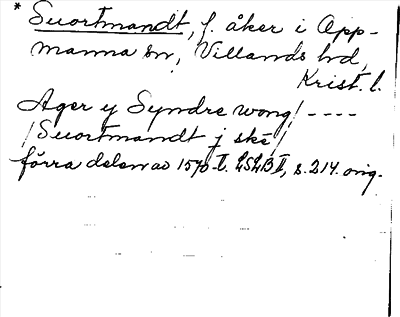 * Suortmandt, f. åker i Opp-
manna sn, Villands hd,
Krist. l.
Ager y Syndre wong/ ----
/Suortmandt j skë/
förra delen av 1570-t. LSLB II, s. 214. orig.